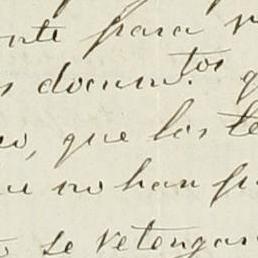 nte para
s docum.tos
o, que los te
u no han
se retengan